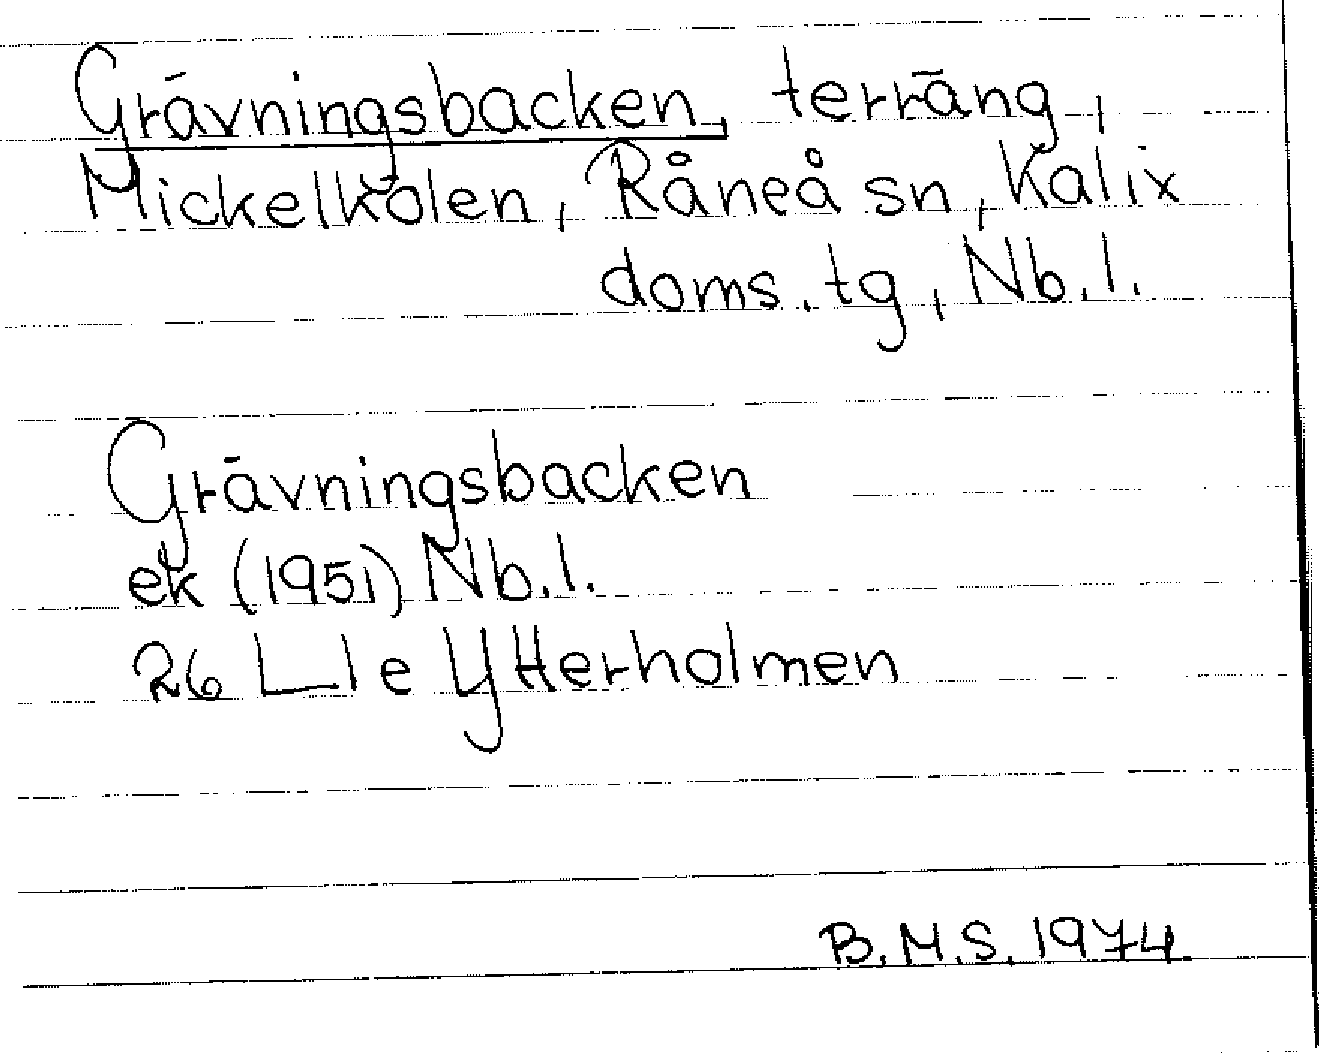 Grävningsbacken, terräng,
Mickelkölen, Råneå sn, Kalix
doms. tg, Nb. l.
Grävningsbacken
ek (1951) Nb. l.
26 L l e Ytterholmen
B.M.S. 1974